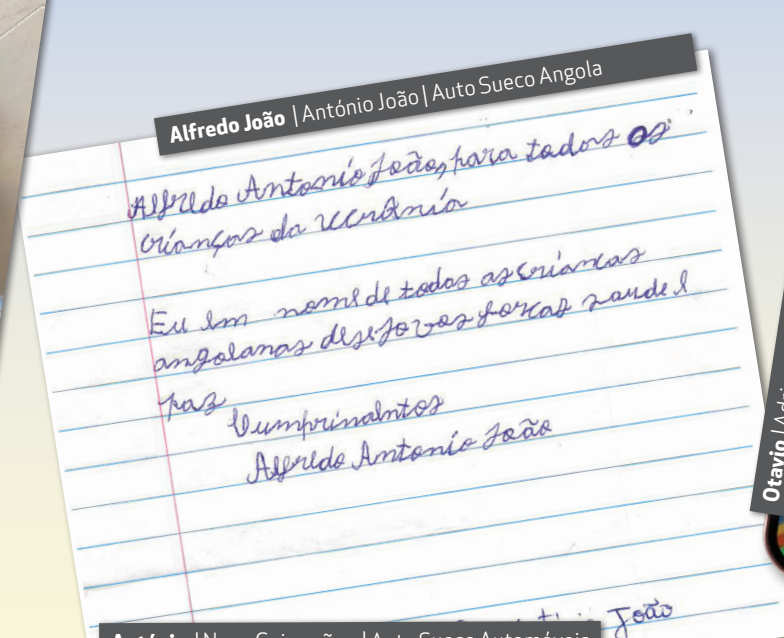 Alfredo João | António João | Auto Sueco Angola
Alfredo Antonío João, para todos os
críanças da ucrânía
Eu em nome de todas as críancas
angolanas desejo vos forcas saude e
paz
Cumprimentos
Alfredo Antonío João
João
Otavio |